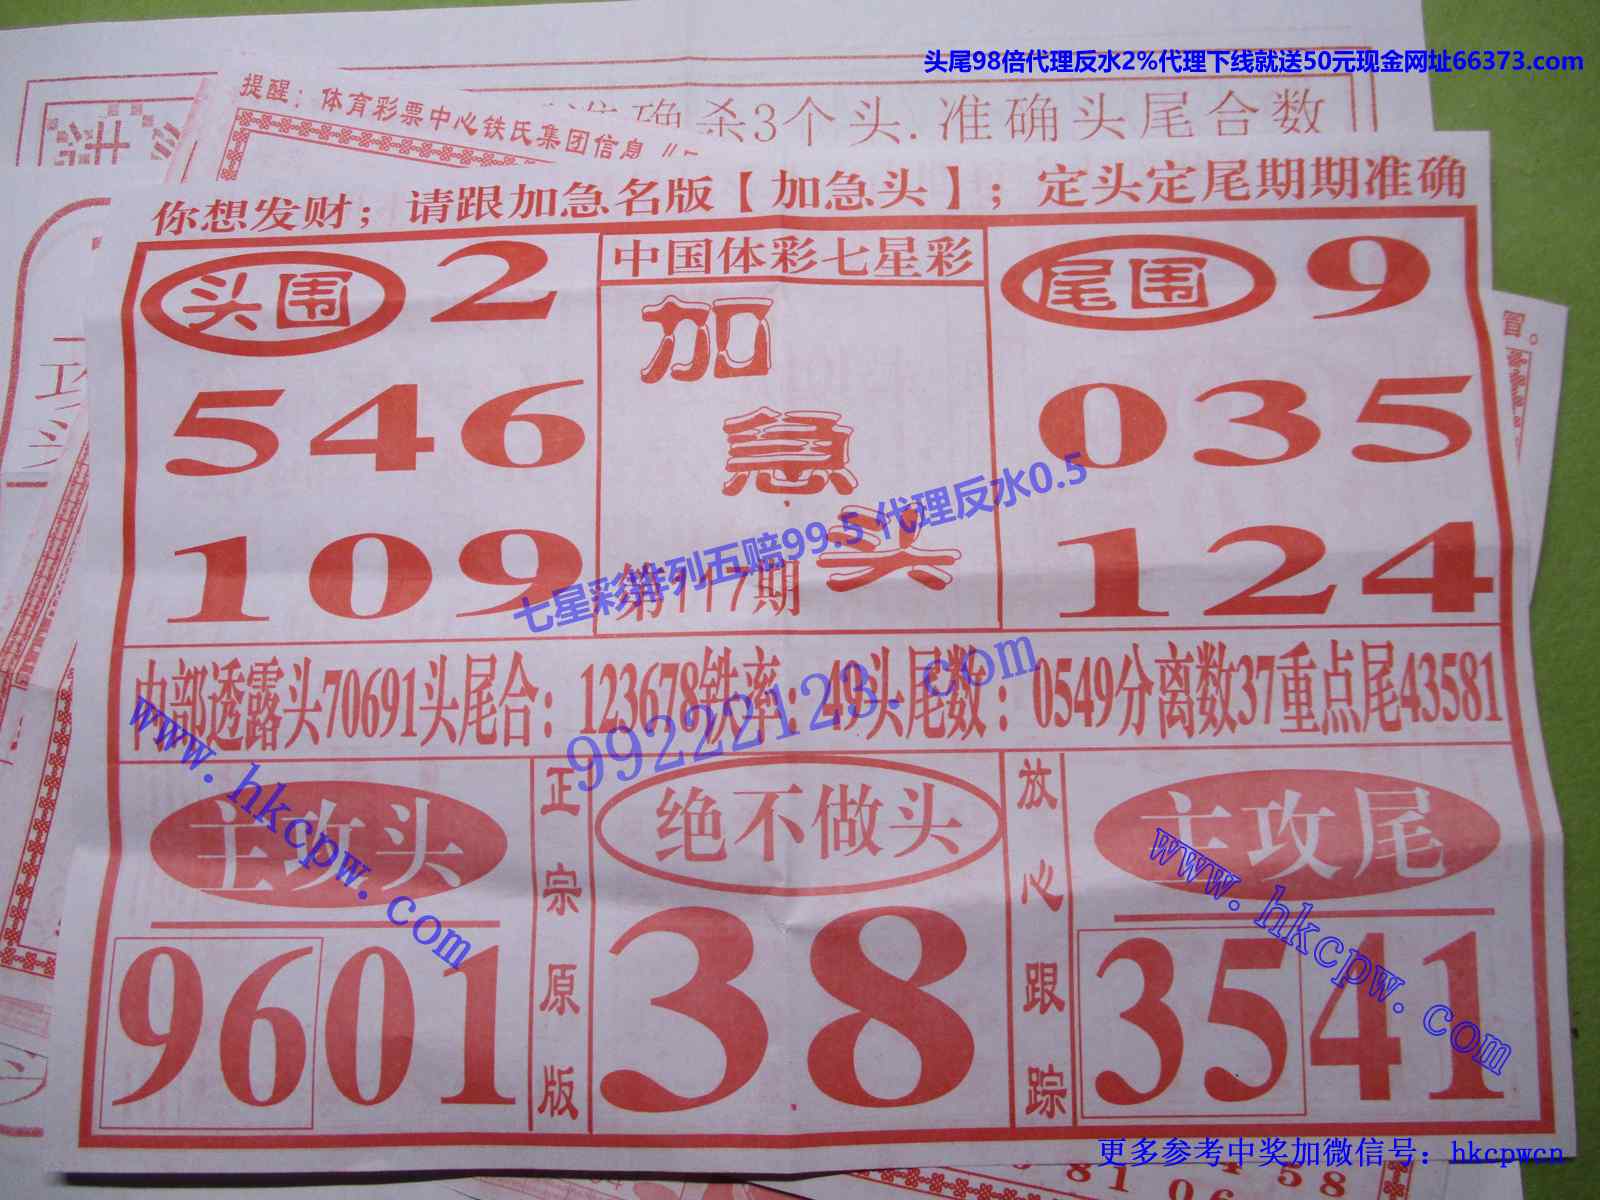 头尾98倍代理反水2%代理下线就送50元现金网址66373.com
提醒：体育彩票中心铁氏集团信息
准确杀3个头.准确头尾合数
你想发财；请跟加急名版【加急头】；定头定尾期期准确
头围 2
546
109
中国体彩七星彩
加
急
头
第117期
尾围 9
035
124
七星彩排列五赔99.5 代理反水0.5
内部透露头70691头尾合：123678铁率：49头尾数：0549分离数37重点尾43581
99222123.com
www.hkcpw.com
主攻头
9601
正宗原版
绝不做头
38
放心跟踪
主攻尾
3541
www.hkcpw.com
更多参考中奖加微信号：hkcpwcn